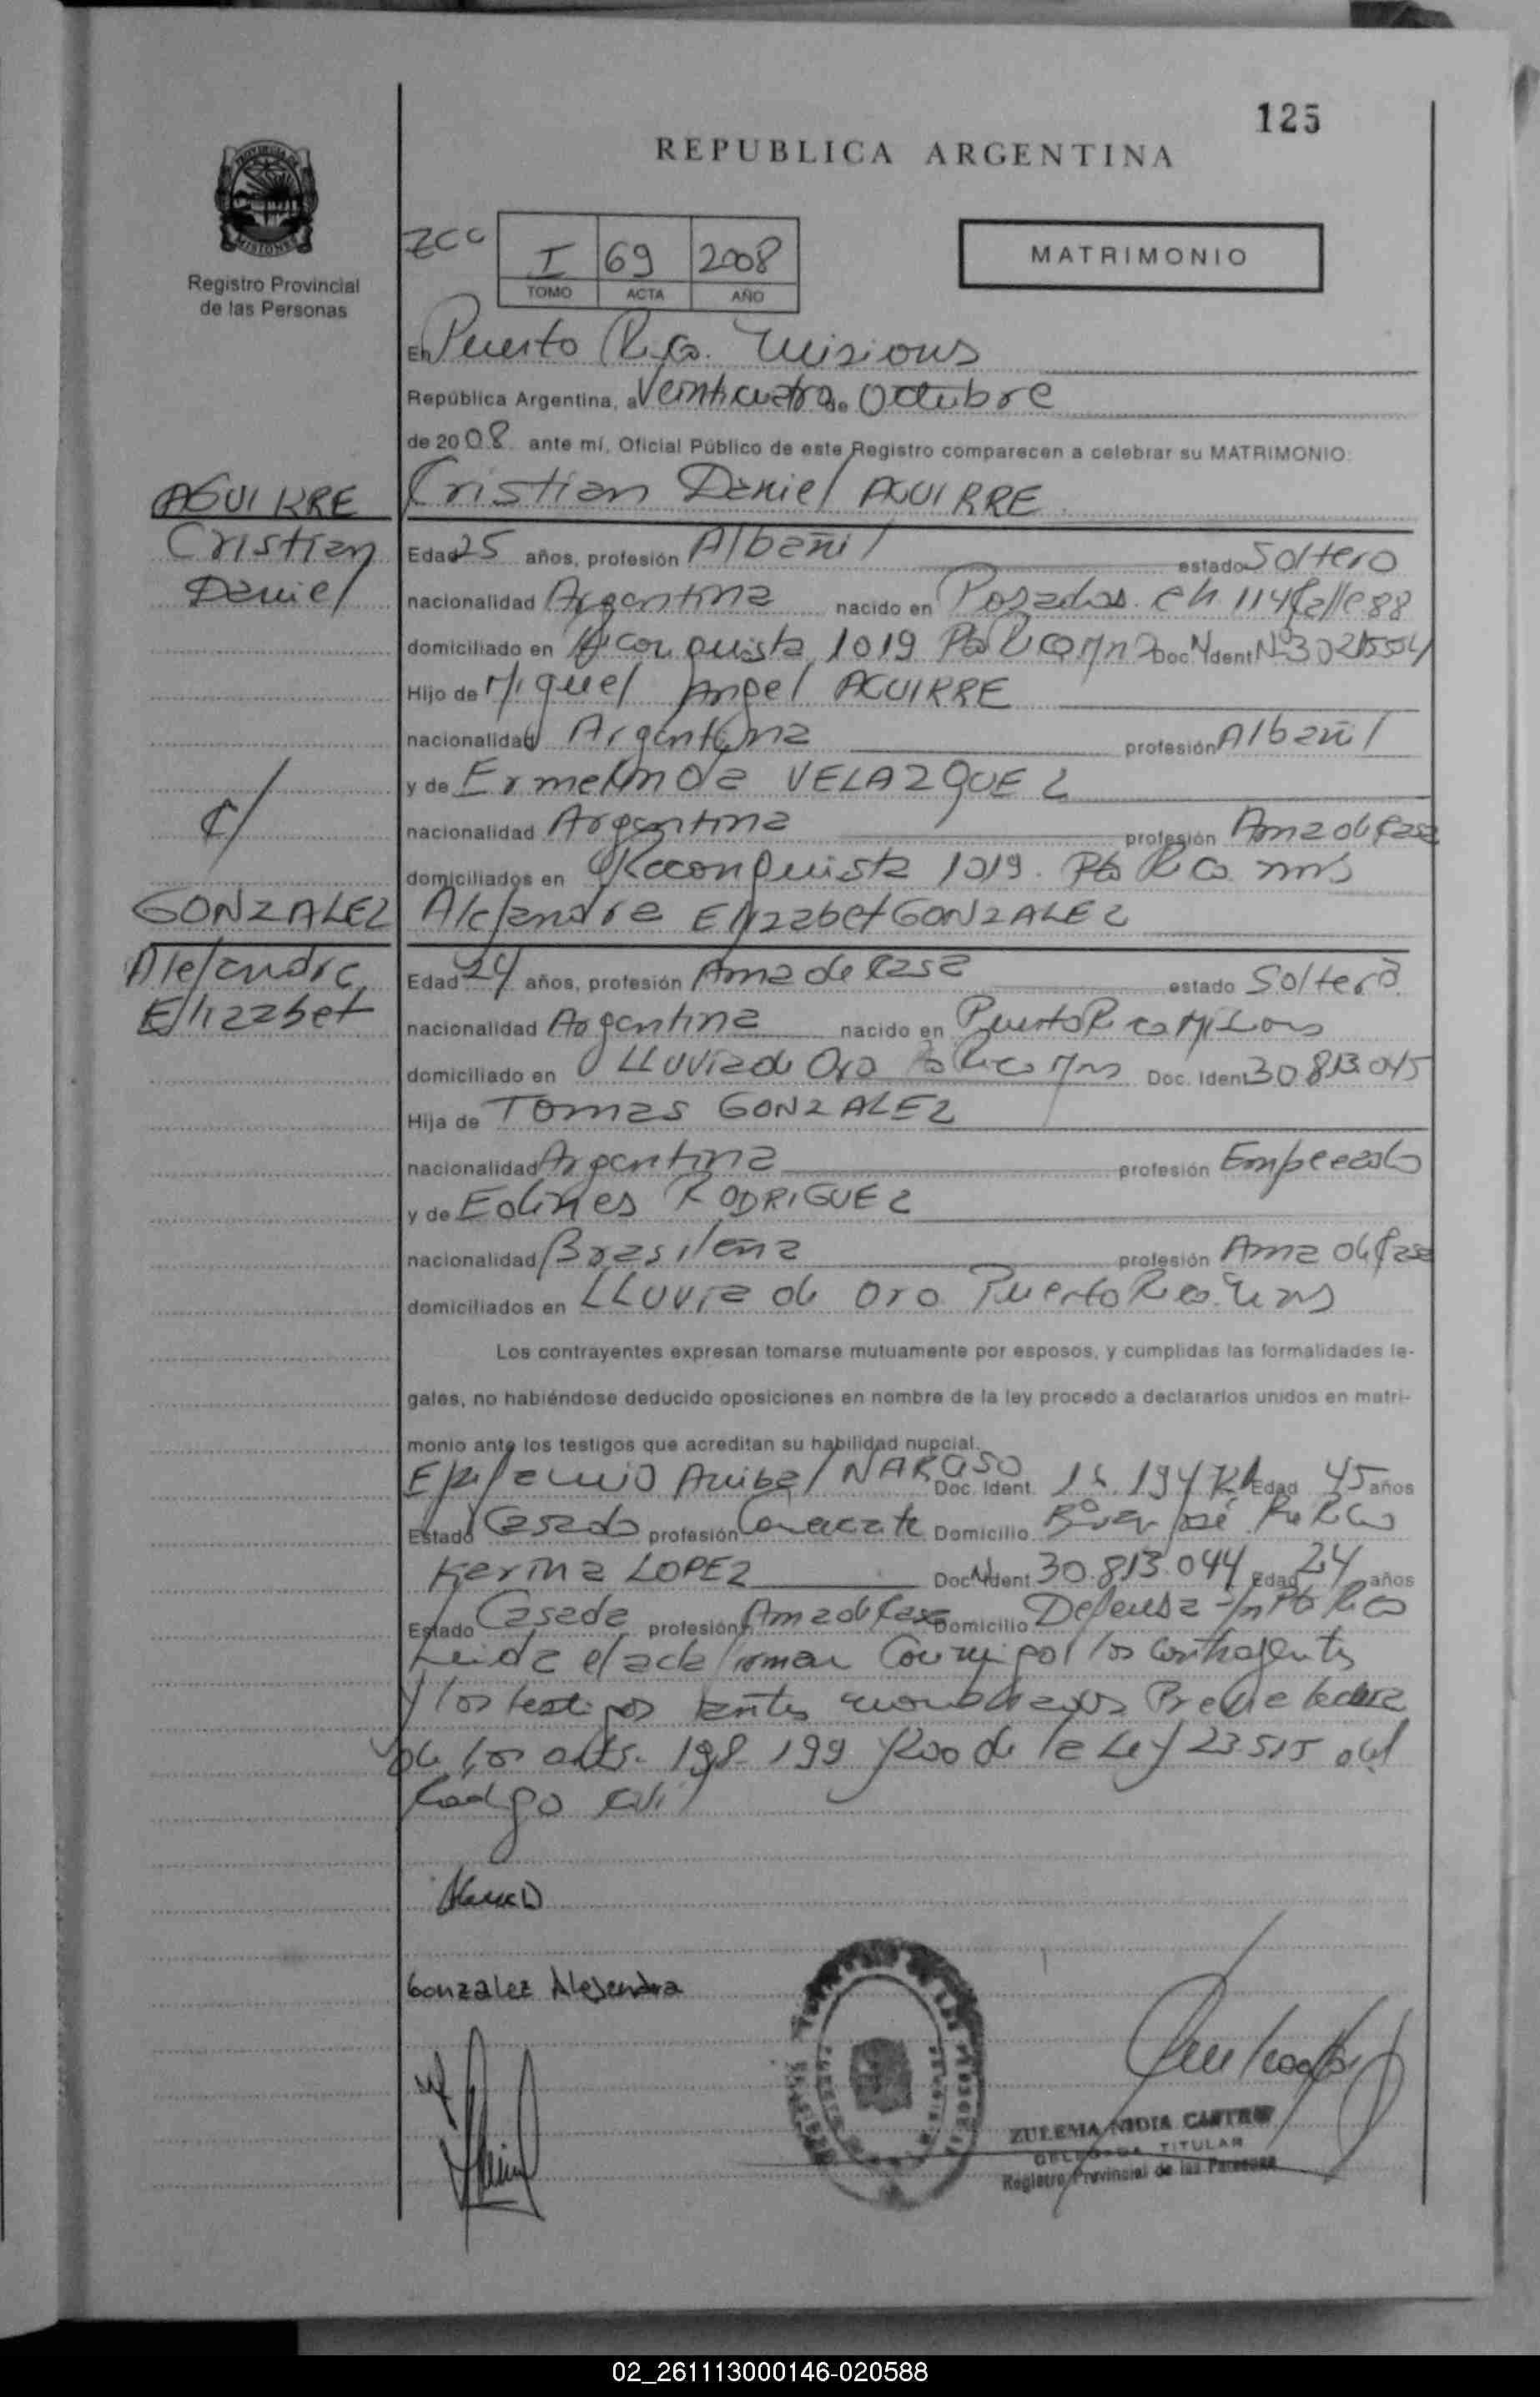 125
REPUBLICA ARGENTINA
PROVINCIA DE MISIONES
Registro Provincial
de las Personas
ZCC
I 69 2008
TOMO ACTA AÑO
MATRIMONIO
En Puerto Rico. Misiones
República Argentina, a Veinticuatro de Octubre
de 2008 ante mí, Oficial Público de este Registro comparecen a celebrar su MATRIMONIO:
AGUIRRE
Cristian
Daniel
Cristian Daniel AGUIRRE
Edad 25 años, profesión Albañil estado Soltero
nacionalidad Argentina nacido en Posadas. ch. 114 Calle 88
domiciliado en Reconquista 1019 Pto Rico Mnes Doc. Ident Nº
Hijo de Miguel Angel AGUIRRE
nacionalidad Argentina profesión Albañil
y de Ermelinda VELAZQUEZ
c/
nacionalidad Argentina profesión Ama de Casa
domiciliados en Reconquista 1019. Pto Rico mns
GONZALEZ
Alejandra
Elizabet
Alejandra Elizabet GONZALEZ
Edad 24 años, profesión Ama de Casa estado Soltera
nacionalidad Argentina nacido en Puerto Rico Misiones
domiciliado en LLuvia de Oro Pto Rico Mns Doc. Ident 30.813.045
Hija de Tomas GONZALEZ
nacionalidad Argentina profesión Empleado
y de RODRIGUEZ
nacionalidad Brasileña profesión Ama de Casa
domiciliados en LLuvia de Oro Puerto Rico. Mns
Los contrayentes expresan tomarse mutuamente por esposos, y cumplidas las formalidades le-
gales, no habiéndose deducido oposiciones en nombre de la ley procedo a declararlos unidos en matri-
monio ante los testigos que acreditan su habilidad nupcial.
Epifanio Anibal Doc. Ident. Edad 45 años
Estado Casado profesión Domicilio José Pto Rico
Karina LOPEZ Doc. Ident 30.813.044 Edad 24 años
Estado Casada profesión Ama de Casa Domicilio Defensa s/n Pto Rico
Leida el acta firman conmigo los contrayentes
y los testigos antes nombrados Previa lectura
de los arts. 198-199 y 200 de la Ley 23.515 del
Código Civil
Gonzalez Alejandra
ZULEMA NIDIA CASTRO
DELEGADA TITULAR
Registro Provincial de las Personas
02_261113000146-020588